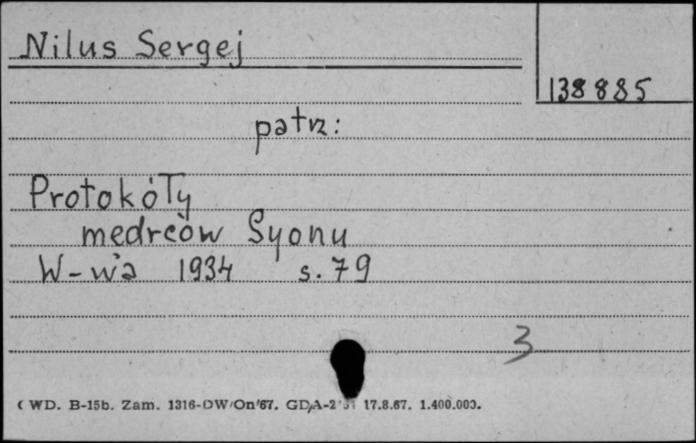 Nilus Sergej
138885
patrz:
Protokóły
mędrców Syonu
W-wa 1934 s.79
3
(WD. B-15b. Zam. 1316-DW/On/67. 17.8.67. 1.400.000.